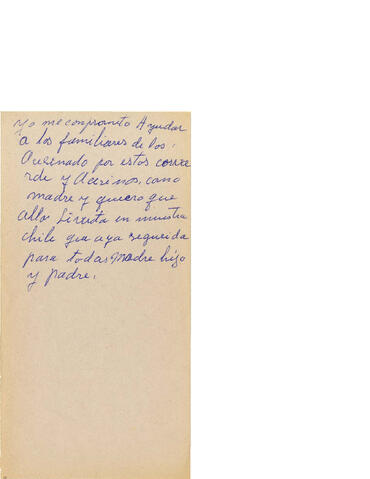 Yo me conpromito Ayudar
a los familiares de los
Acesinado por estos covar
rde y Acesinos, como
madre y quiero que
alla livertá en nuestra
chile que aya seguridá
para todas madre hijo
y padre.